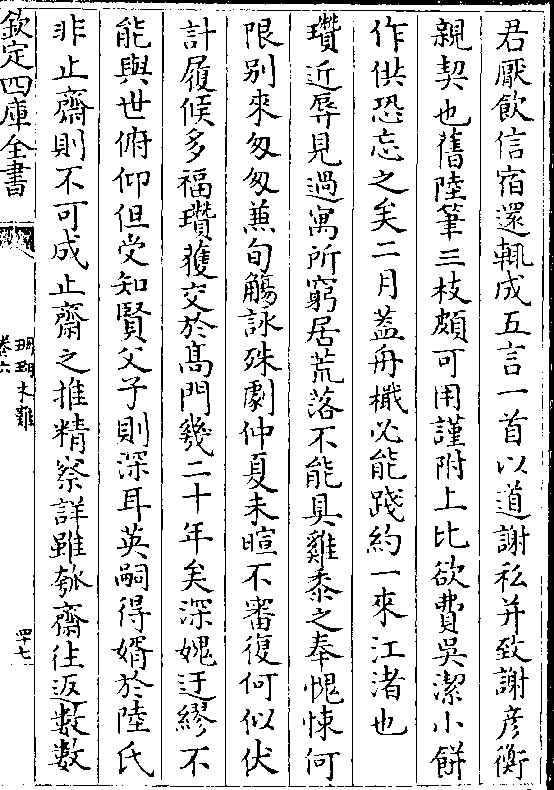 君厭飲信宿還輒成五言一首以道謝私并致謝彥衡
親契也舊陸筆三枝頗可用謹附上比欲費吳潔小餅
作供恐忘之矣二月盖舟檝必能踐約一來江渚也
瓚近辱見過寓所窮居荒落不能具雞黍之奉愧悚何
限别來匆匆蕉旬觴詠殊劇仲夏未暄不審復何似伏
計履候多福瓚獲交於高門幾二十年矣深媿迂繆不
能與世俯仰但受知賢父子則深耳英嗣得婿於陸氏
非止齋則不可成止齋之推精察詳雖匏齋往返數數
欽定四庫全書
珊瑚木難
卷六
四七